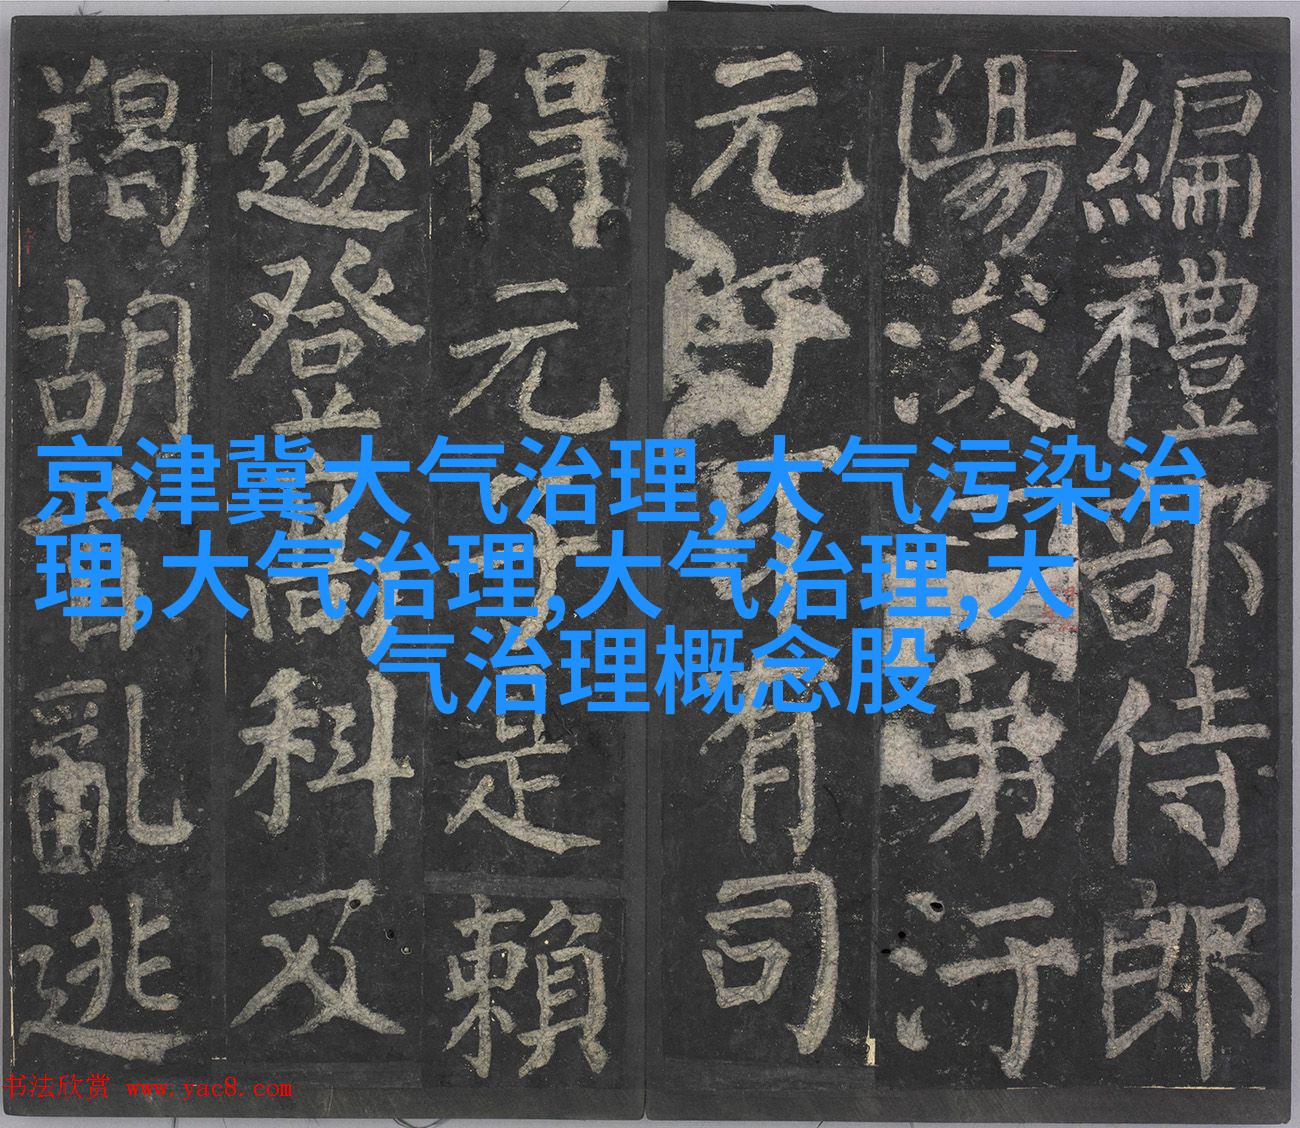 京津冀大气治理,大气污染治
理,大气治理,大气治理,大
气治理概念股
編禮部侍郎
陽浚第汙
元有司
得元子是賴
遂登高科及
羯胡首亂逃
书法欣赏 www.yac8.com